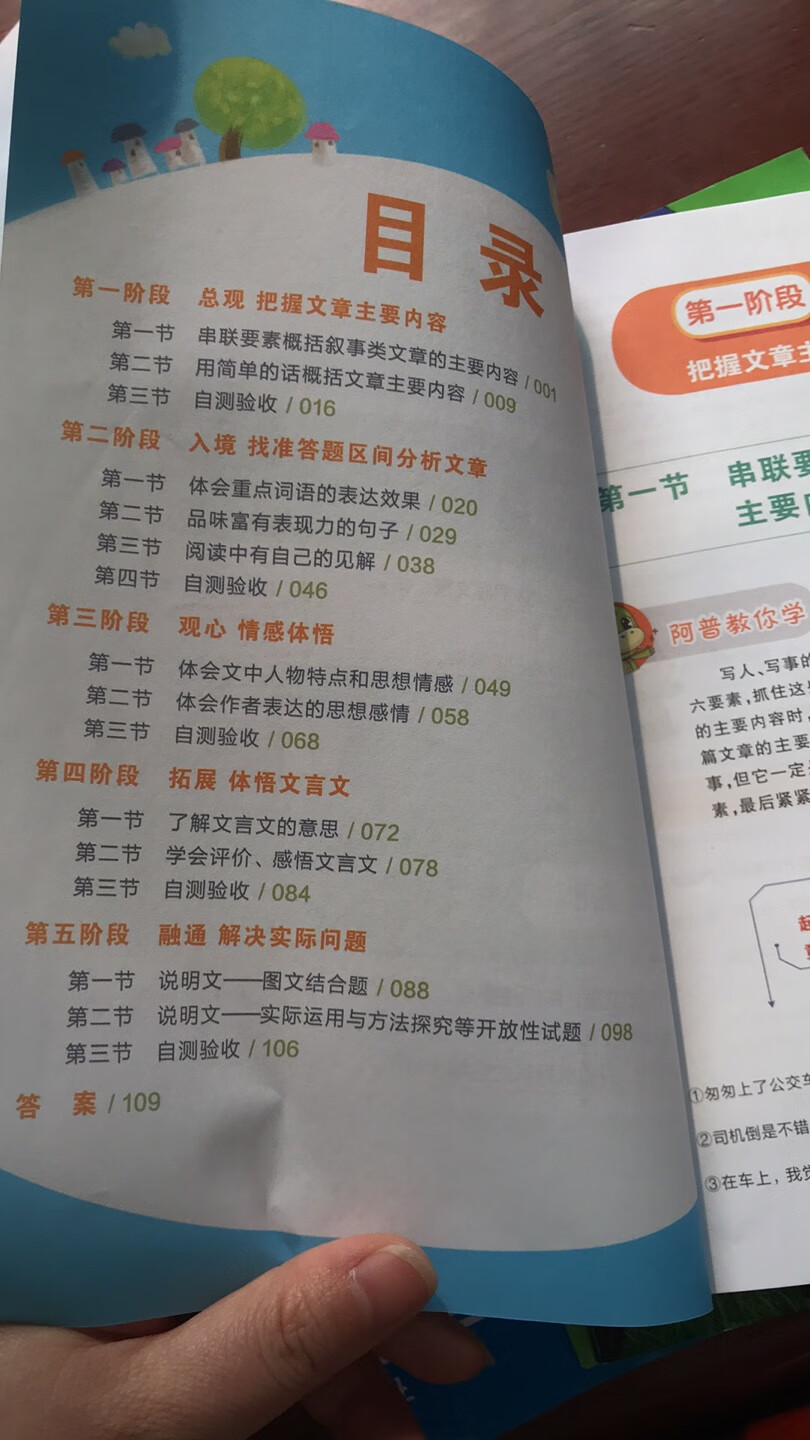 目 录
第一阶段 总观 把握文章主要内容
第一节 串联要素概括叙事类文章的主要内容 / 001
第二节 用简单的话概括文章主要内容 / 009
第三节 自测验收 / 016
第二阶段 入境 找准答题区间分析文章
第一节 体会重点词语的表达效果 / 020
第二节 品味富有表现力的句子 / 029
第三节 阅读中有自己的见解 / 038
第四节 自测验收 / 046
第三阶段 观心 情感体悟
第一节 体会文中人物特点和思想情感 / 049
第二节 体会作者表达的思想感情 / 058
第三节 自测验收 / 068
第四阶段 拓展 体悟文言文
第一节 了解文言文的意思 / 072
第二节 学会评价、感悟文言文 / 078
第三节 自测验收 / 084
第五阶段 融通 解决实际问题
第一节 说明文——图文结合题 / 088
第二节 说明文——实际运用与方法探究等开放性试题 / 098
第三节 自测验收 / 106
答 案 / 109
第一阶段
把握文章主
第一节 串联要
主要
阿普教你学
写人、写事的
六要素,抓住这
的主要内容时,
篇文章的主要
事,但它一定
素,最后紧紧
①匆匆上了公交车
②司机倒是不错
③在车上,我